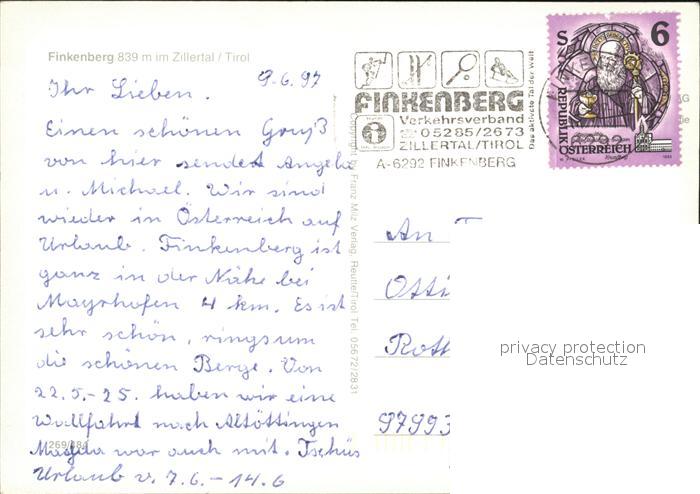 Finkenberg 839 m im Zillertal / Tirol
9.6.97
Ihr Lieben.
Einen schönen Gruß
von hier sendet Angela
u. Michael. Wir sind
wieder in Österreich auf
Urlaub. Finkenberg ist
ganz in der Nähe bei
Mayrhofen 4 km. Es ist
sehr schön, ringsum
die schönen Berge. Von
22.5.-25. haben wir eine
Wallfahrt nach Altöttingen
Magda war auch mit. Tschüs
Urlaub v. 7.6. - 14.6
269/384
Copyright by Franz Milz Verlag, Reutte/Tirol Tel. 05672/2831
FINKENBERG
Verkehrsverband
☏ 05285/2673
ZILLERTAL/TIROL
A-6292 FINKENBERG
Das aktivste Tal der Welt
S 6
REPUBLIK
ÖSTERREICH
1993
An
Otti
Rott
97993
privacy protection
Datenschutz